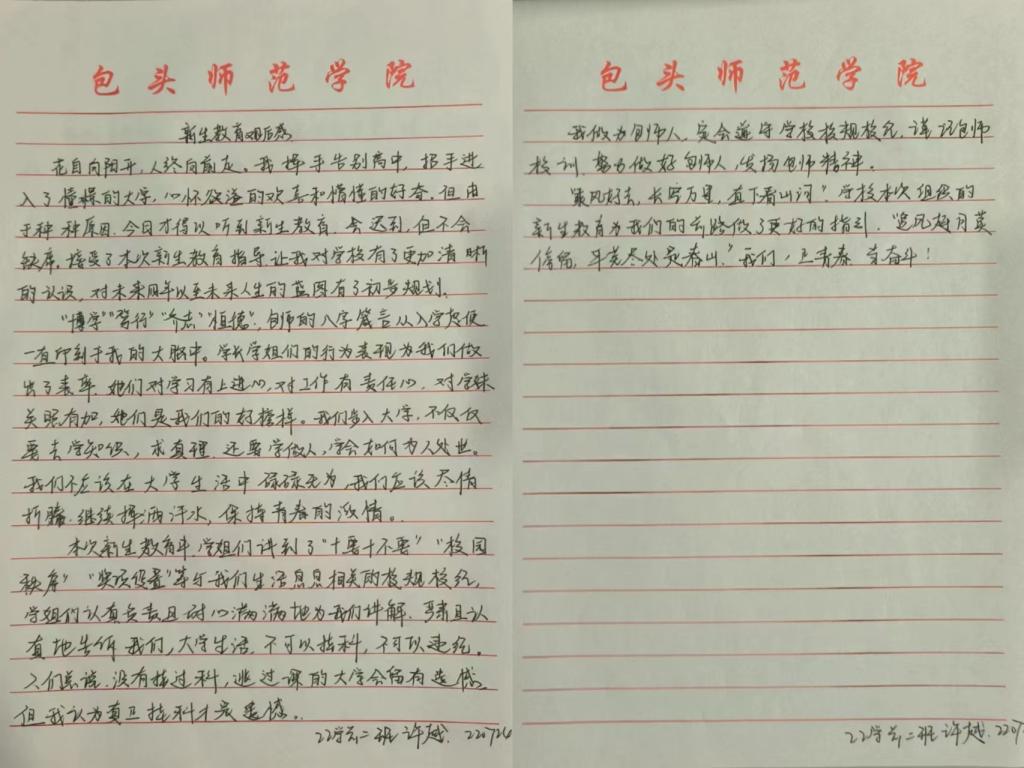 包头师范学院
新生教育观后感
花自向阳开,人终向前走。我挥手告别高中,招手进
入了憧憬的大学,心怀欲溢的欢喜和懵懂的好奇。但由
于种种原因,今日才得以听到新生教育,会迟到,但不会
缺席。接受了本次新生教育指导,让我对学校有了更加清晰
的认识,对未来四年以至未来人生的蓝图有了初步规划。
"博学""笃行""弁志""恒德",包师的八字箴言从入学起便
一直印到于我的大脑中。学长学姐们的行为表现为我们做
出了表率,她们对学习有上进心,对工作有责任心,对学妹
关照有加,她们是我们的好榜样。我们步入大学,不仅仅
要去学知识,求真理,还要学做人,学会如何为人处世。
我们不应该在大学生活中碌碌无为,我们应该尽情
折腾,继续挥洒汗水,保持青春的激情。
本次新生教育中,学姐们讲到了"十要十不要""校园
秩序""奖项设置"等与我们生活息息相关的校规校纪,
学姐们认真负责且耐心满满地为我们讲解,严肃且认
真地告诉我们,大学生活,不可以挂科,不可以违纪。
人们总说,没有挂过科,逃过课的大学会留有遗憾。
但我认为真正挂科才是遗憾。
22学前二班许越. 220724
包头师范学院
我做为包师人,定会遵守学校校规校纪,谨记包师
校训,努力做好包师人,发扬包师精神。
"乘风好去,长空万里,直下看山河"学校本次组织的
新生教育为我们的前路做了更好的指引,"追风赶月莫
停留,平芜尽处是春山。"我们,正青春 当奋斗!
22学前二班许越. 2207